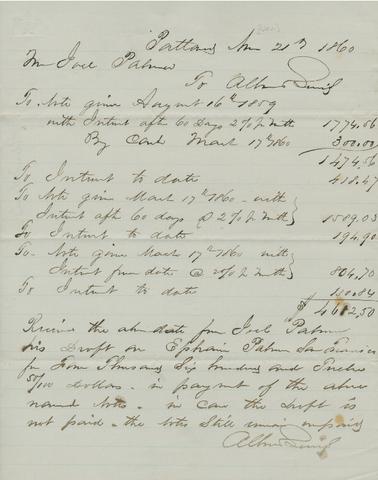 Portland Nov 21st 1860
Mr Joel Palmer
To
To Note given August 16th 1859
with Intrest after 60 Days 2 % pr mth 1774.56
By Cash March 17th 1860 300.00
1474.56
To Intrest to date 418.47
To Note given March 17th 1860 with
Intrest aft 60 days @ 2 % pr mth 1589.03
To Intrest to date 194.90
To Note given March 17th 1860 with
Intrest from date @ 2 % pr mth 804.70
To Intrest to date 130.84
$ 4612,50
Received the above date from Joel Palmer
his Draft on Ephraim Palmer San Francisco
for Four Thousand Six hundred and Twelve
50/100 Dollars - in payment of the above
named Notes - in case the draft is
not paid - the notes still remain unpaid